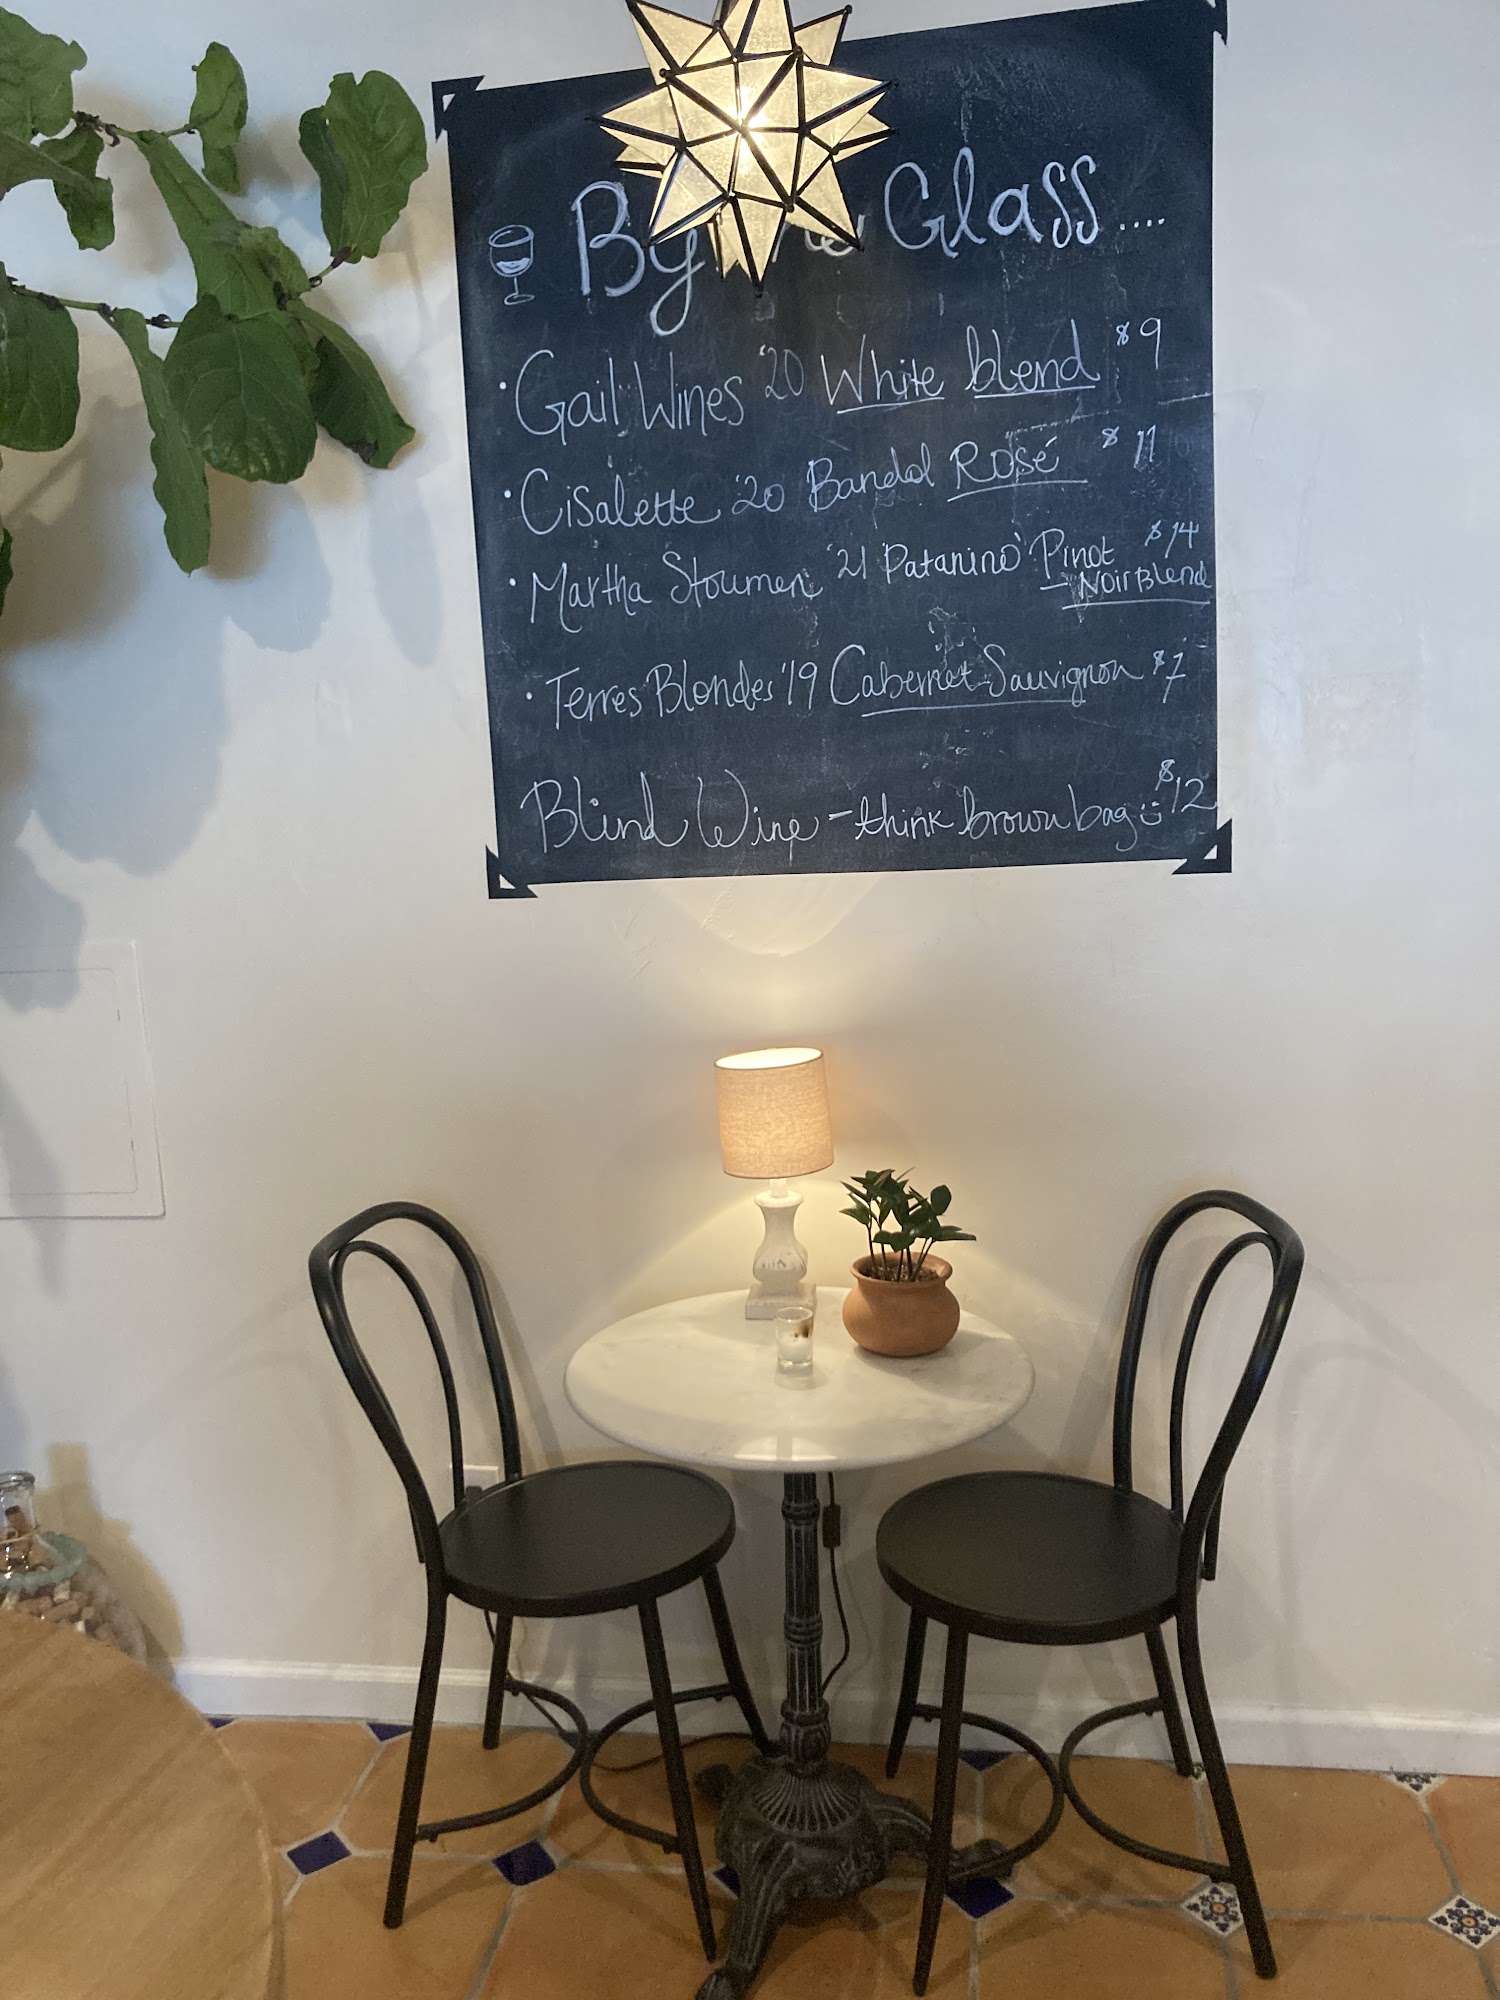 By The Glass ....
· Gail Wines '20 White blend $9
· Cisalette '20 Bandol Rosé $11
· Martha Stoumen '21 'Patanino' Pinot $14
– Noir Blend
· Terres Blondes '19 Cabernet Sauvignon $7
Blind Wine – think brown bag $12